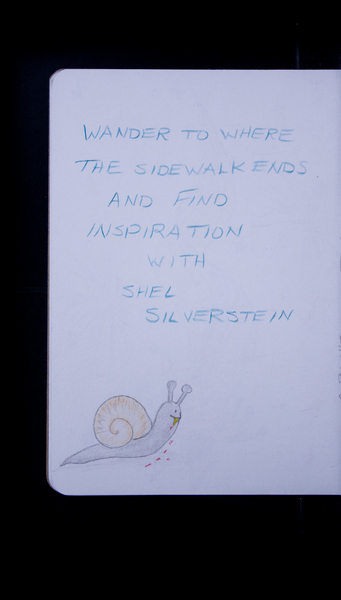 WANDER TO WHERE
THE SIDEWALK ENDS
AND FIND
INSPIRATION
WITH
SHEL
SILVERSTEIN